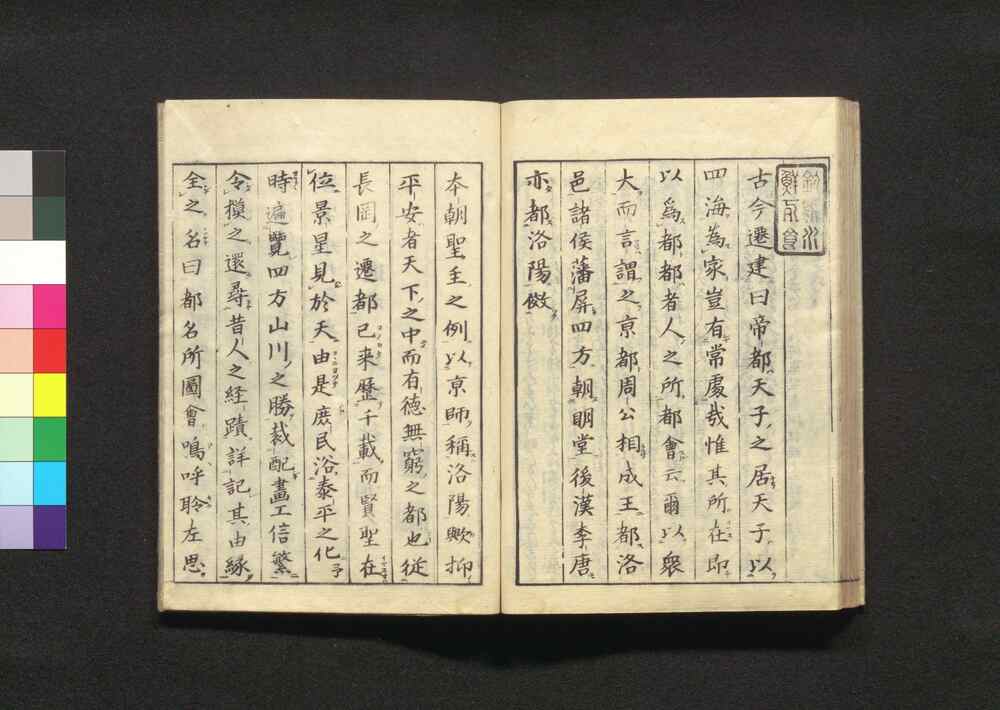 古今遷建曰帝都天子之居天子以
四海為家豈有常處哉惟其所在即
以爲都都者人之所都會云爾以衆
大而言謂之京都周公相成王都洛
邑諸侯藩屏四方朝明堂後漢李唐
亦都洛陽倣
本朝聖主之例以京師稱洛陽歟抑
平安者天下之中而有德無窮之都也従
長岡之遷都已来歴千載而賢聖在
位景星見於天由是庶民浴泰平之化予
時遍覧四方山川之勝裁配畫工信繁
令摸之還尋昔人之経蹟詳記其由縁
全之名曰都名所圖會嗚呼聆左思